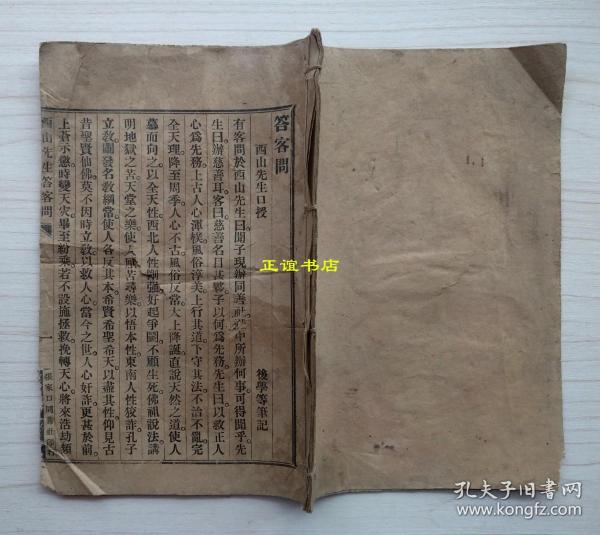 答客問
西山先生口授　後學等筆記
有客問於西山先生曰。聞子現辦同善社。社中所辦何事。可得聞乎。先
生曰。辦慈善耳。客曰。慈善名目甚夥。子以何爲先務。先生曰。以救正人
心爲先務。上古人心渾樸。風俗淳美。上行其道。下守其法。不治不亂。完
全天理。降至周季。人心不古。風俗反常。太上降誕。直說天然之道。使人
慕而向之。以全天性。西北人性剛強。好起爭鬭。不顧生死。佛祖說法。講
明地獄之苦。天堂之樂。使人厭苦尋樂。以悟本性。東南人性狡詐。孔子
立教。闡發名教綱常。使人各反其本。希賢希聖希天。以盡其性。仰見古
昔聖賢仙佛。莫不因時立教。以救人心。當今之世。人心奸詐。更甚於前。
上蒼示懲。時變天灾。畢至紛乘。若不設施拯救。挽轉天心。將來浩劫頻
西山先生答客問
一
張家口同善社
正谊书店
孔夫子旧书网
www.kongfz.com